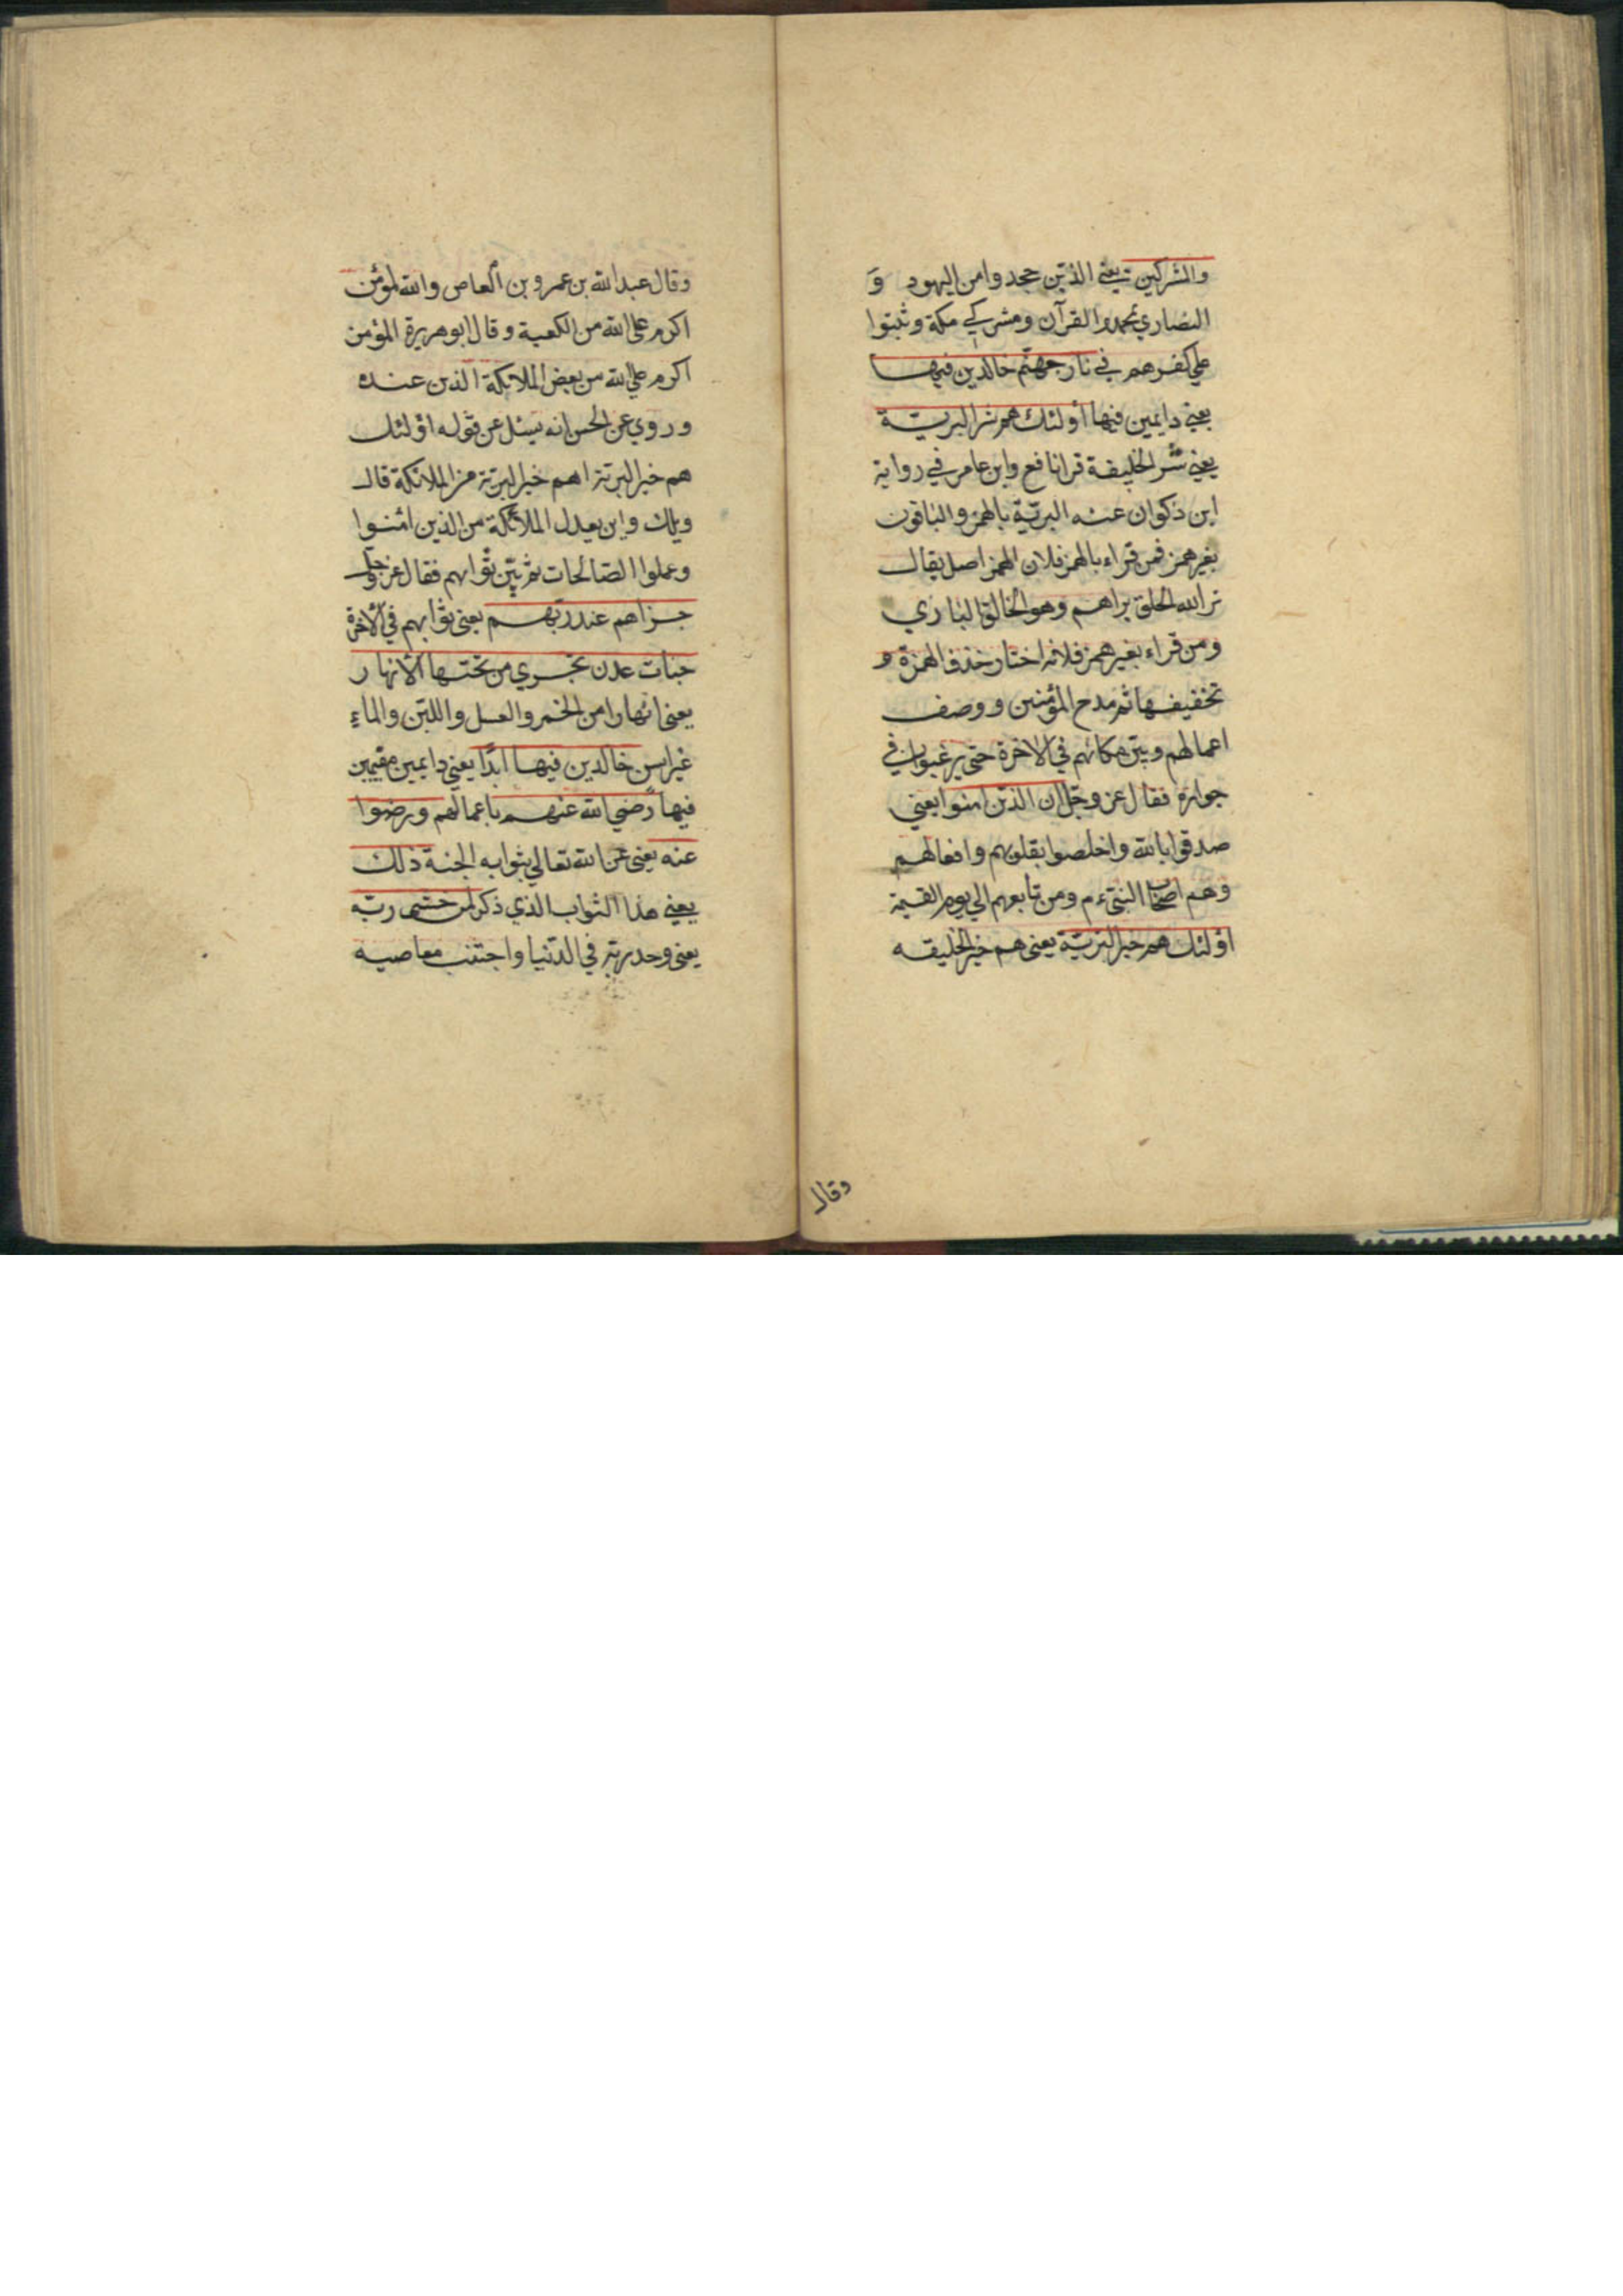 والمشركين يعني الذين جحدوا من اليهود و
النصاري بمحمد والقرآن ومشركي مكة وثبتوا
علي كفرهم في نار جهنم خالدين فيها
يعني دايمين فيها أولئك هم شر البرية
يعني شر الخليفة قرا نافع وابن عامر في رواية
ابن ذكوان عنه البرئية بالهمز والباقون
بغير همز فمن قراء بالهمز فلان الهمز اصل يقال
برا الله الخلق براهم وهو الخالق الباري
ومن قراء بغير همز فلانه اختار حذف الهمزة و
تخفيفها ثم مدح المؤمنين ووصف
اعمالهم وبين مكانهم في الاخرة حتي يرغبوا في
جواره فقال عز وجل ان الذين امنوا يعني
صدقوا بالله واخلصوا بقلوبهم وافعالهم
وهم اصحاب النبي ءم ومن تابعهم الي يوم القيمة
اولئك هم خير البرية يعني هم خير الخليقه
وقال
وقال عبد الله بن عمرو بن العاص والله لمؤمن
اكرم علي الله من الكعبة وقال ابو هريرة المؤمن
اكرم علي الله من بعض الملائكة الذين عنده
وروي عن الحسن انه سئل عن قوله اولئك
هم خير البرية اهم خير البرية من الملائكة قال
ويلك واين يعدل الملائكة من الذين امنوا
وعملوا الصالحات ثم بين ثوابهم فقال عز وجل
جزاهم عند ربهم يعني ثوابهم في الاخرة
جنات عدن تجري من تحتها الانهار
يعني انهارا من الخمر والعسل واللبن والماء
غير اسن خالدين فيها ابدا يعني دايمين مقيمين
فيها رضي الله عنهم باعمالهم ورضوا
عنه يعني عن الله تعالي بثوابه الجنة ذلك
يعني هذا الثواب الذي ذكر لمن خشي ربه
يعني وحد ربه في الدنيا واجتنب معاصيه